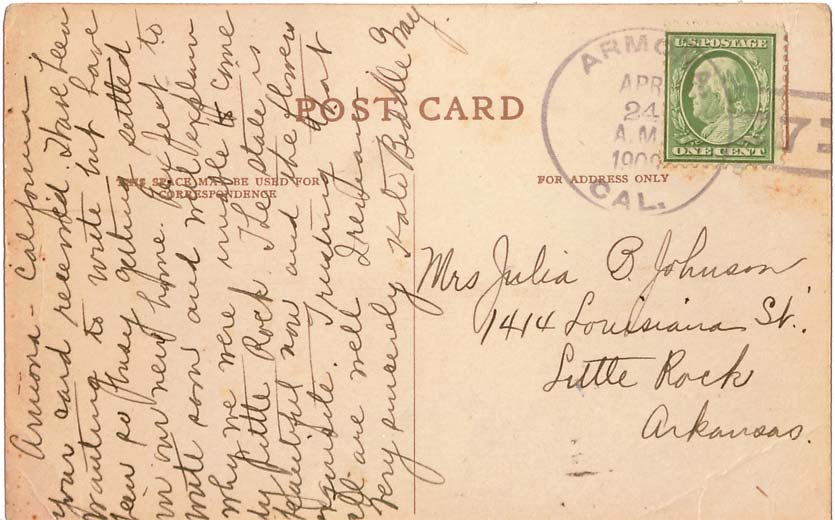 POST CARD
THIS SPACE MAY BE USED FOR
CORRESPONDENCE
FOR ADDRESS ONLY
U.S. POSTAGE
ONE CENT
ARMO
APR
24
A.M.
1909
CAL.
Mrs Julia B. Johnson
1414 Louisiana St.
Little Rock
Arkansas.
Armona - California
your card received. Have been
wanting to write but have
been so busy getting settled
in our new home. Will
write soon and will explain
why we were unable to come
by Little Rock. The state is
beautiful now and the flowers
exquisite. Trusting that
all are well I remain
Very sincerely Kate Biddle May.